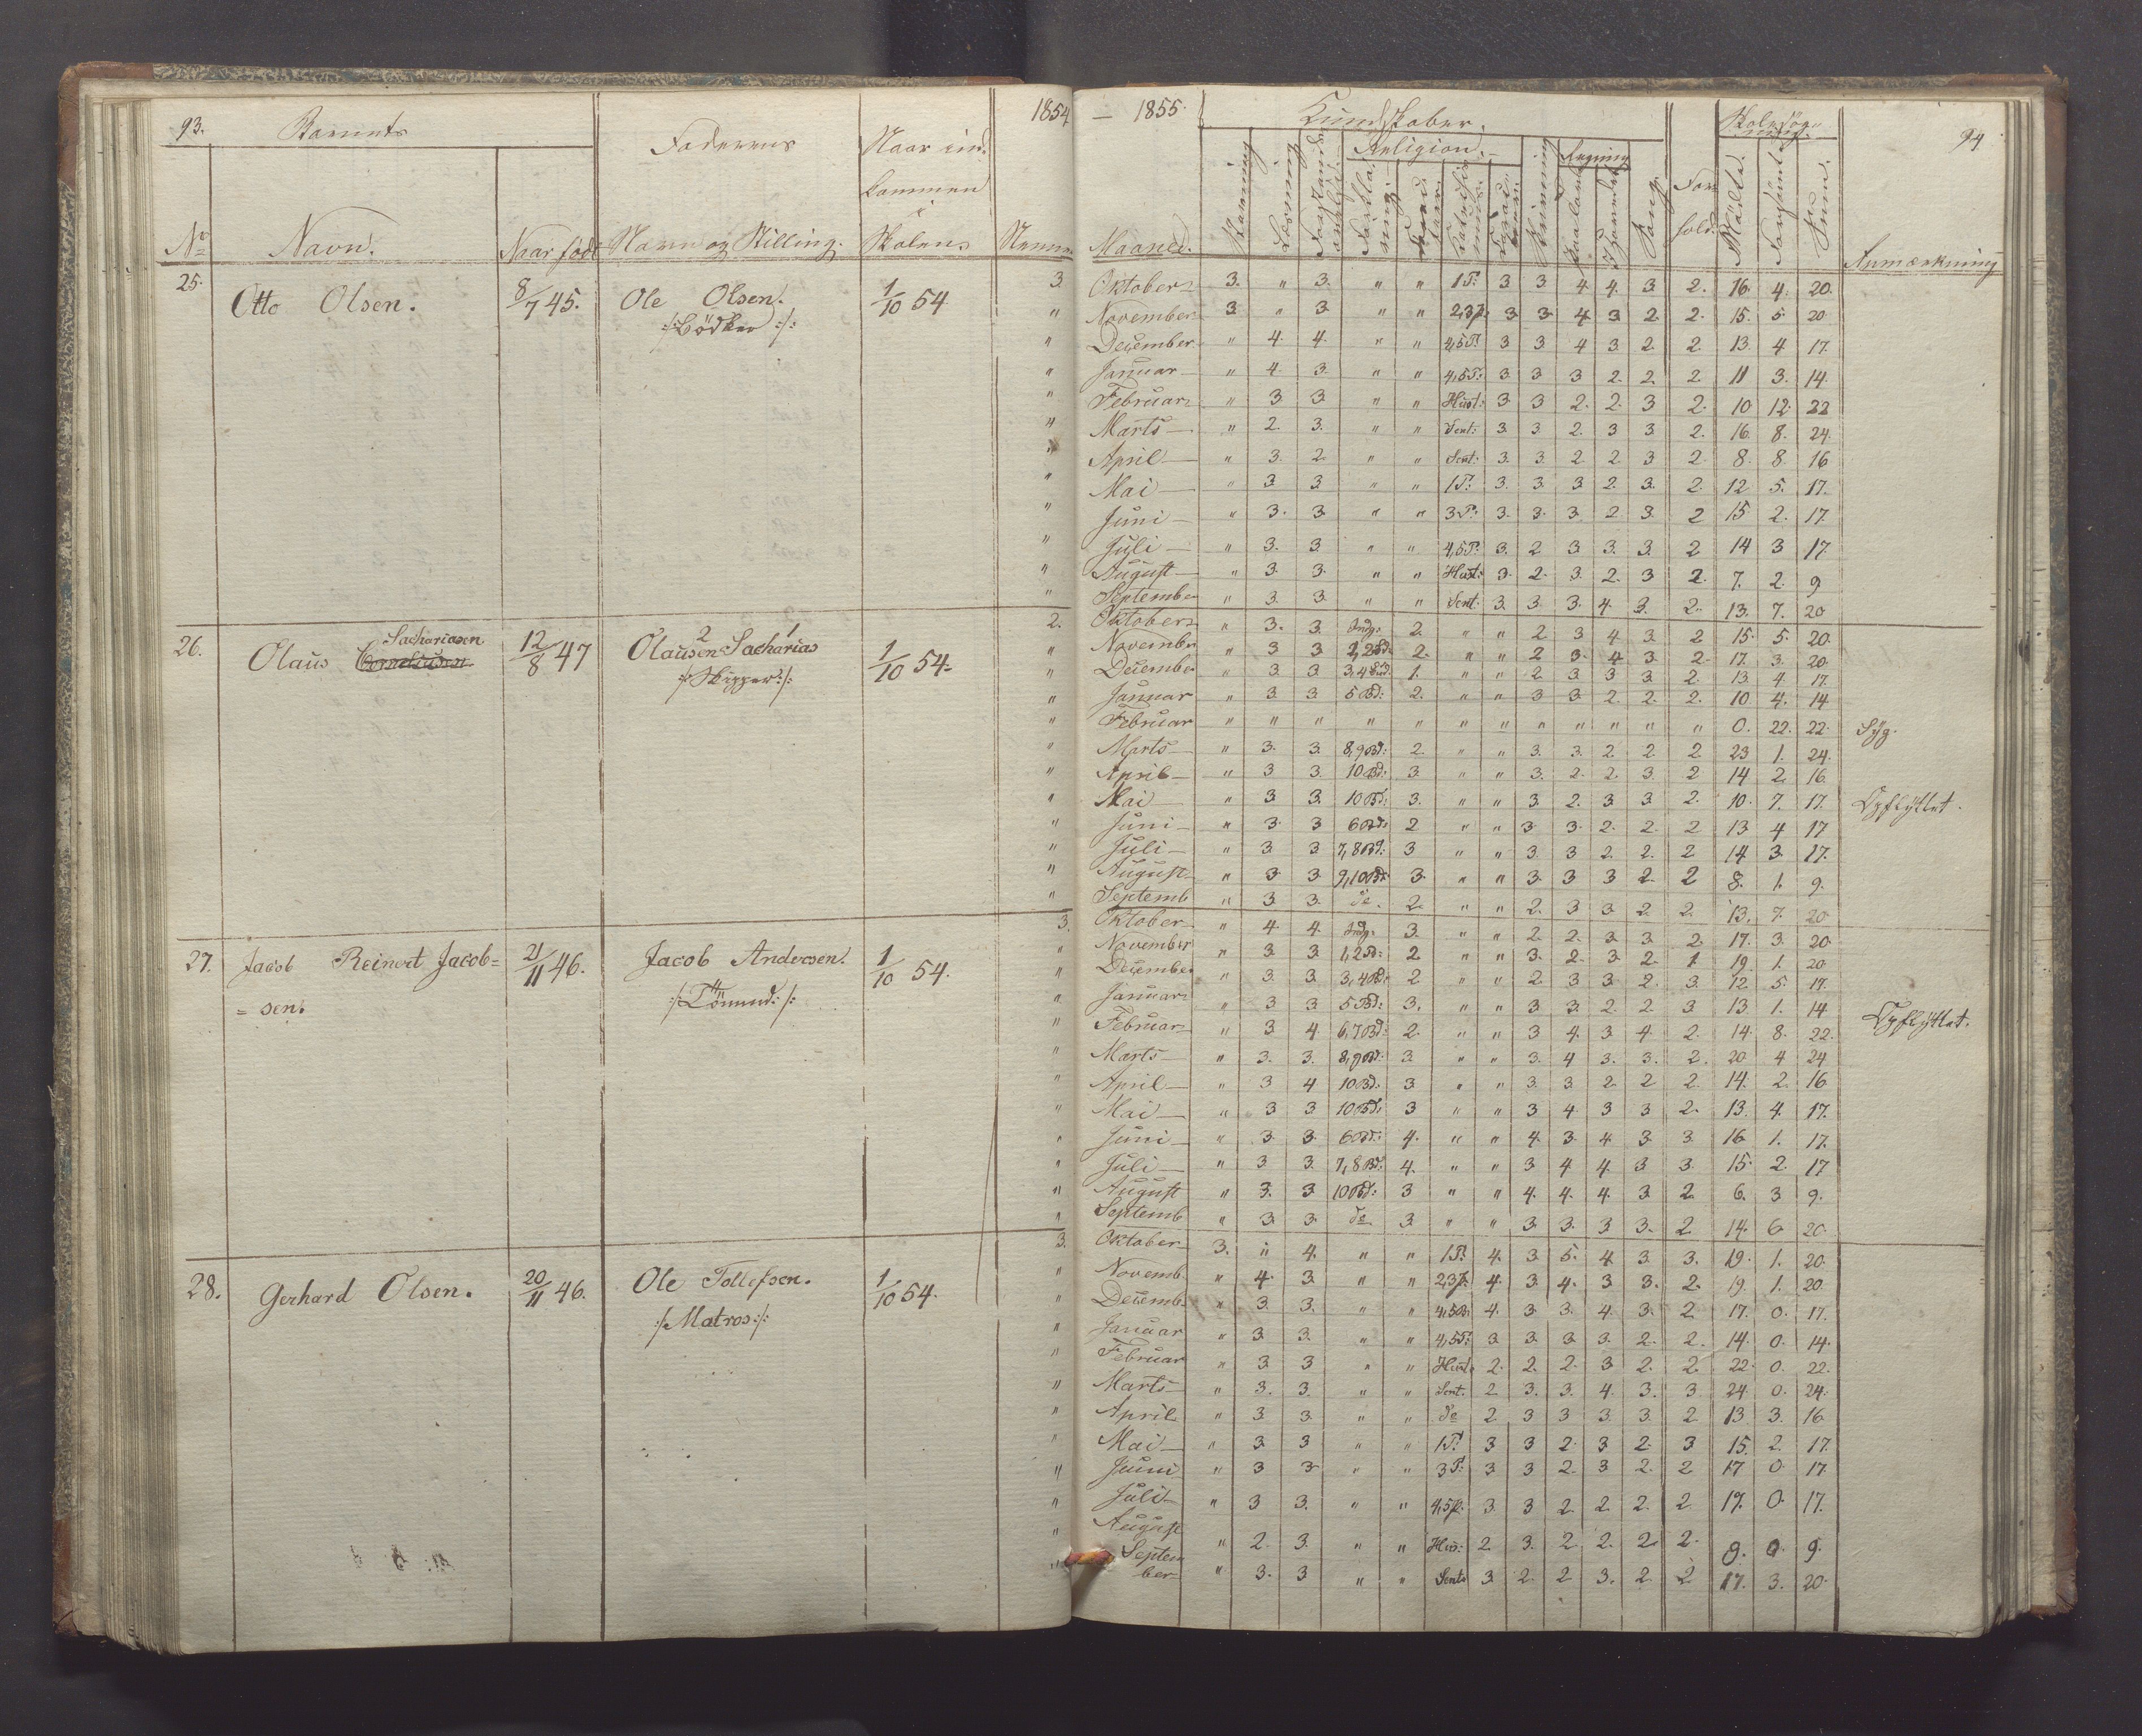 93.
Barnets
Faderens
Naar ind-
kommen
i
Skolen.
1854
No
Navn.
Naar født
Navn og Stilling.
25.
Otto Olsen.
8/7 45.
Ole Olsen.
:/:Bødker:/:
1/10 54
3.
26.
Sachariasen
Olaus Corneliusen
12/8 47
2 1
Olausen Sacharias
:/:Skipper:/:
1/10 54.
2.
27.
Jacob Reinert Jacob=
=sen.
21/11 46.
Jacob Andersen.
1/10 54.
3.
28.
Gerhard Olsen.
20/11 46.
Ole Tollefsen.
:/:Matros:/:
1/10 54.
3.
– 1855.
Kundskaber.
94
Religion.
Regning
Maaned.
Stavning
Læsning
Sang
For-
hold.
Mødte.
Forsømte
Sum.
Anmærkning
Oktober 3. " 3. " " 1P. 3 3 4 4. 3 2. 16. 4. 20.
November 3 " 3 " " 2,3P. 3 3. 4 3 2. 2. 15. 5. 20
December " 4. 4. " " 4,5P. 3 3 4 3. 2. 2. 13. 4 17.
Januar " 4. 3. " " 4,5P. 3 3 3 2. 2. 2 11 3. 14.
Februar " 3 3 " " Hust. 3 3 2. 2. 3 2. 10 12. 22
Marts " 2. 3. " " Sent. 3. 3. 2. 3 3. 2. 16. 8. 24.
April " 3. 2. " " Sent. 3. 3. 2 2. 3 2. 8. 8. 16
Mai " 3 3 " " 1P. 3. 3. 3 2. 3. 2. 12 5. 17.
Juni " 3. 3 " " 3P. 3. 3. 3. 2. 3. 2 15 2. 17.
Juli " 3. 3 " " 4,5P. 3. 2 3 3. 3. 2 14 3 17.
August " 3. 3. " " Hust. 3. 2. 3. 2. 3 2. 7. 2. 9
September " 3. 3 " " Sent. 3. 3. 3. 4. 3. 2. 13. 7. 20
Oktober " 3. 3. Indg. 2. " " 2 3 4 3. 2 15. 5. 20.
November " 3 3 1,2Bd. 2. " " 2 3. 4. 3 2. 17. 3. 20.
December " 3 3. 3,4Bd. 1. " " 2 3 3 3 2. 13 4. 17.
Januar " 3. 3 5Bd. 2. " " 3 3. 2. 2. 2. 10 4. 14
Februar " " " " " " " " " " " " 0. 22. 22. Syg.
Marts " 3. 3. 8,9Bd. 2. " " 3. 3. 2 2. 2 23 1. 24.
April " 3 3. 10Bd. 3. " " 3. 2. 2. 3. 2 14 2. 16.
Mai " 3 3. 10Bd. 3. " " 3. 2. 3 3. 2. 10. 7. 17. Opflyttet.
Juni " 3. 3 6Bd. 2 " " 3 3. 2. 2. 2 13 4 17
Juli " 3. 3 7,8Bd. 3 " " 3. 3 2. 2. 2 14 3. 17.
August " 3. 3. 9,10Bd. 3. " " 3. 3 3 2. 2 8. 1. 9.
Septemb " 3 3. do. 2. " " 2. 3 3 2 2. 13. 7. 20.
Oktober " 4. 4. Indg. 3. " " 2. 2. 3. 3. 2. 17. 3. 20.
November " 3 3. 1,2Bd. 2 " " 3. 2. 3. 2. 1 19. 1. 20
December " 3 3. 3,4Bd. 2 " " 2 3 3 2. 3. 12 5. 17.
Januar " 3 3 5Bd. 3. " " 3 3. 2. 2. 3 13. 1. 14
Februar " 3 4 6,7Bd. 2. " " 3 4. 3 4. 2. 14. 8. 22. Opflyttet.
Marts " 3. 3. 8,9Bd. 3 " " 3. 4 3. 3. 2. 20 4 24
April " 3 4 10Bd. 3 " " 3. 3 2 2 2. 14. 2. 16.
Mai " 3 3 10Bd. 3 " " 3 4. 3 3 2. 13. 4. 17.
Juni " 3. 3. 6Bd. 4. " " 4. 3. 4. 3. 3. 16. 1. 17.
Juli " 3 3. 7,8Bd. 4. " " 3 4 4. 3 3. 15. 2. 17
August " 3. 3. 10Bd. 3 " " 4. 4. 4. 3 2. 6. 3 9.
Septemb " 3. 3. do 3. " " 3 3. 3 3. 2 14. 6 20.
Oktober 3. " 4. " " 1P. 4. 3 5. 4 3 3. 19. 1. 20.
Novemb. " 4. 3. " " 2,3P. 4. 3. 4. 3 3. 2. 19. 1. 20.
Decemb. " 3. 3. " " 4,5P. 4. 3 3. 4. 3. 2 17. 0. 17.
Januar " 3 3. " " 4,5P. 3. 3. 3. 3. 2. 2. 14. 0. 14.
Februar " 3 3 " " Hust. 2. 2. 2. 3 2. 2. 22. 0. 22.
Marts " 3. 3. " " Sent. 2 3. 3. 4. 3. 3 24. 0. 24.
April " 3. 3. " " do 2. 3 3 3. 3. 2. 13 3. 16
Mai " 3 3 " " 1P. 3 3 2. 3 2. 3 15. 2. 17.
Juni " 3 3 " " 3P. 3 3 2. 3 2. 2 17 0. 17
Juli " 3 3. " " 4,5P. 3. 3 2 2. 2. 2 17. 0. 17.
August " 2. 3. " " Hus. 2 3. 2 2. 2. 2. 9. 0. 9.
Septem
ber " 3. 3 " " Sent. 3. 2. 2 3. 2. 2 17. 3. 20.